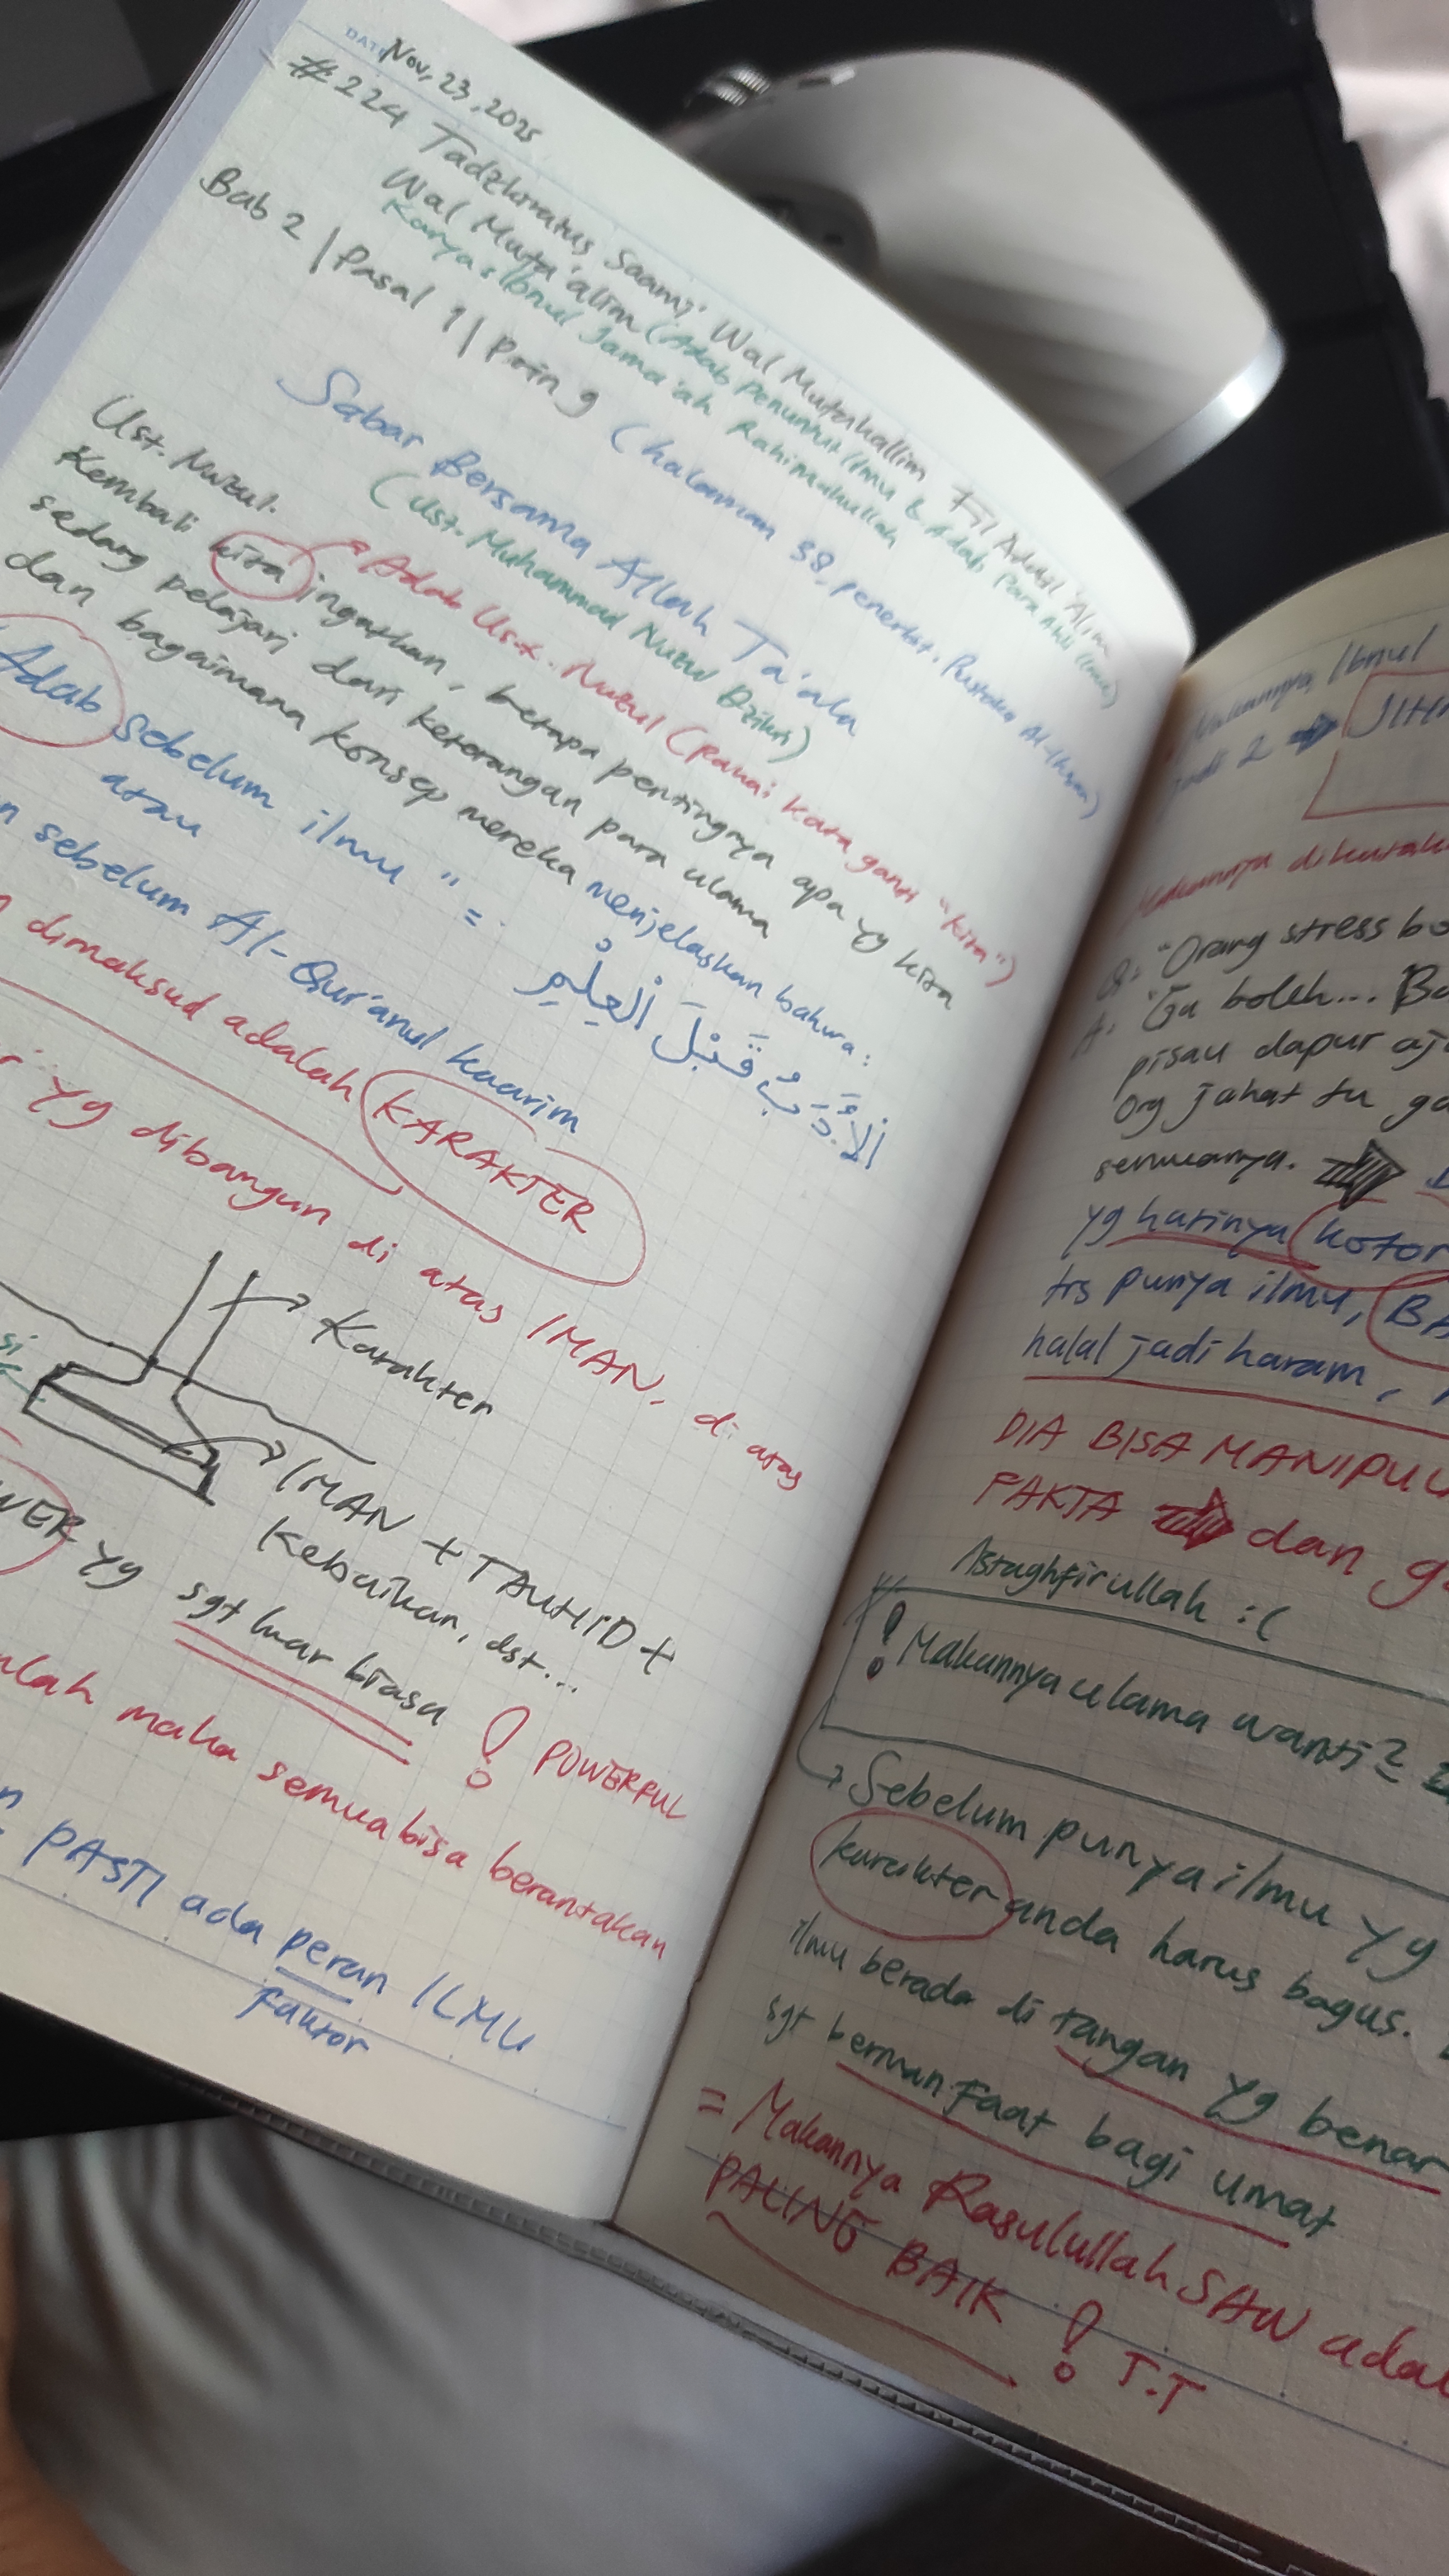 DATE Nov, 23, 2025
#224 Tadzkiratus Saami' Wal Mutakallim Fil Adabil 'Alim
Wal Muta'alim (Adab Penuntut Ilmu & Adab Para Ahli Ilmu)
Karya: Ibnul Jama'ah Rahimahullah
Bab 2 | Pasal 1 | Poin 9 (halaman 38, penerbit. Pustaka Al-Ihsan)
Sabar Bersama Allah Ta'ala
(Ust. Muhammad Nuzul Dzikri)
Ust. Nuzul. Adab Ust. Nuzul (Pakai kata ganti "kita")
Kembali kita ingatkan, betapa pentingnya apa yg kita
sedang pelajari dari keterangan para ulama
dan bagaimana konsep mereka menjelaskan bahwa:
Adab sebelum ilmu " = اَلْأَدَبُ قَبْلَ الْعِلْمِ
atau
sebelum Al-Qur'anul kaarim
dimaksud adalah KARAKTER
yg dibangun di atas IMAN, di atas
Karakter
si
IMAN + TAUHID +
Kebaikan, dst...
WER yg sgt luar biasa ! POWERFUL
lah maka semua bisa berantakan
PASTI ada peran ILMU
Faktor
Makannya, Ibnul
jadi 2
Makannya dikatak
Q: "Orang stress bo
A: "Ga boleh... Ba
pisau dapur aj
Org jahat tu ga
semuanya.
yg hatinya kotor
trs punya ilmu, BA
halal jadi haram,
DIA BISA MANIPUL
FAKTA dan g
Astaghfirullah :(
! Makannya ulama wanti2
Sebelum punya ilmu yg
karakter anda harus bagus.
ilmu berada di tangan yg benar
sgt bermanfaat bagi umat
= Makannya Rasulullah SAW adal
PALING BAIK ! T.T